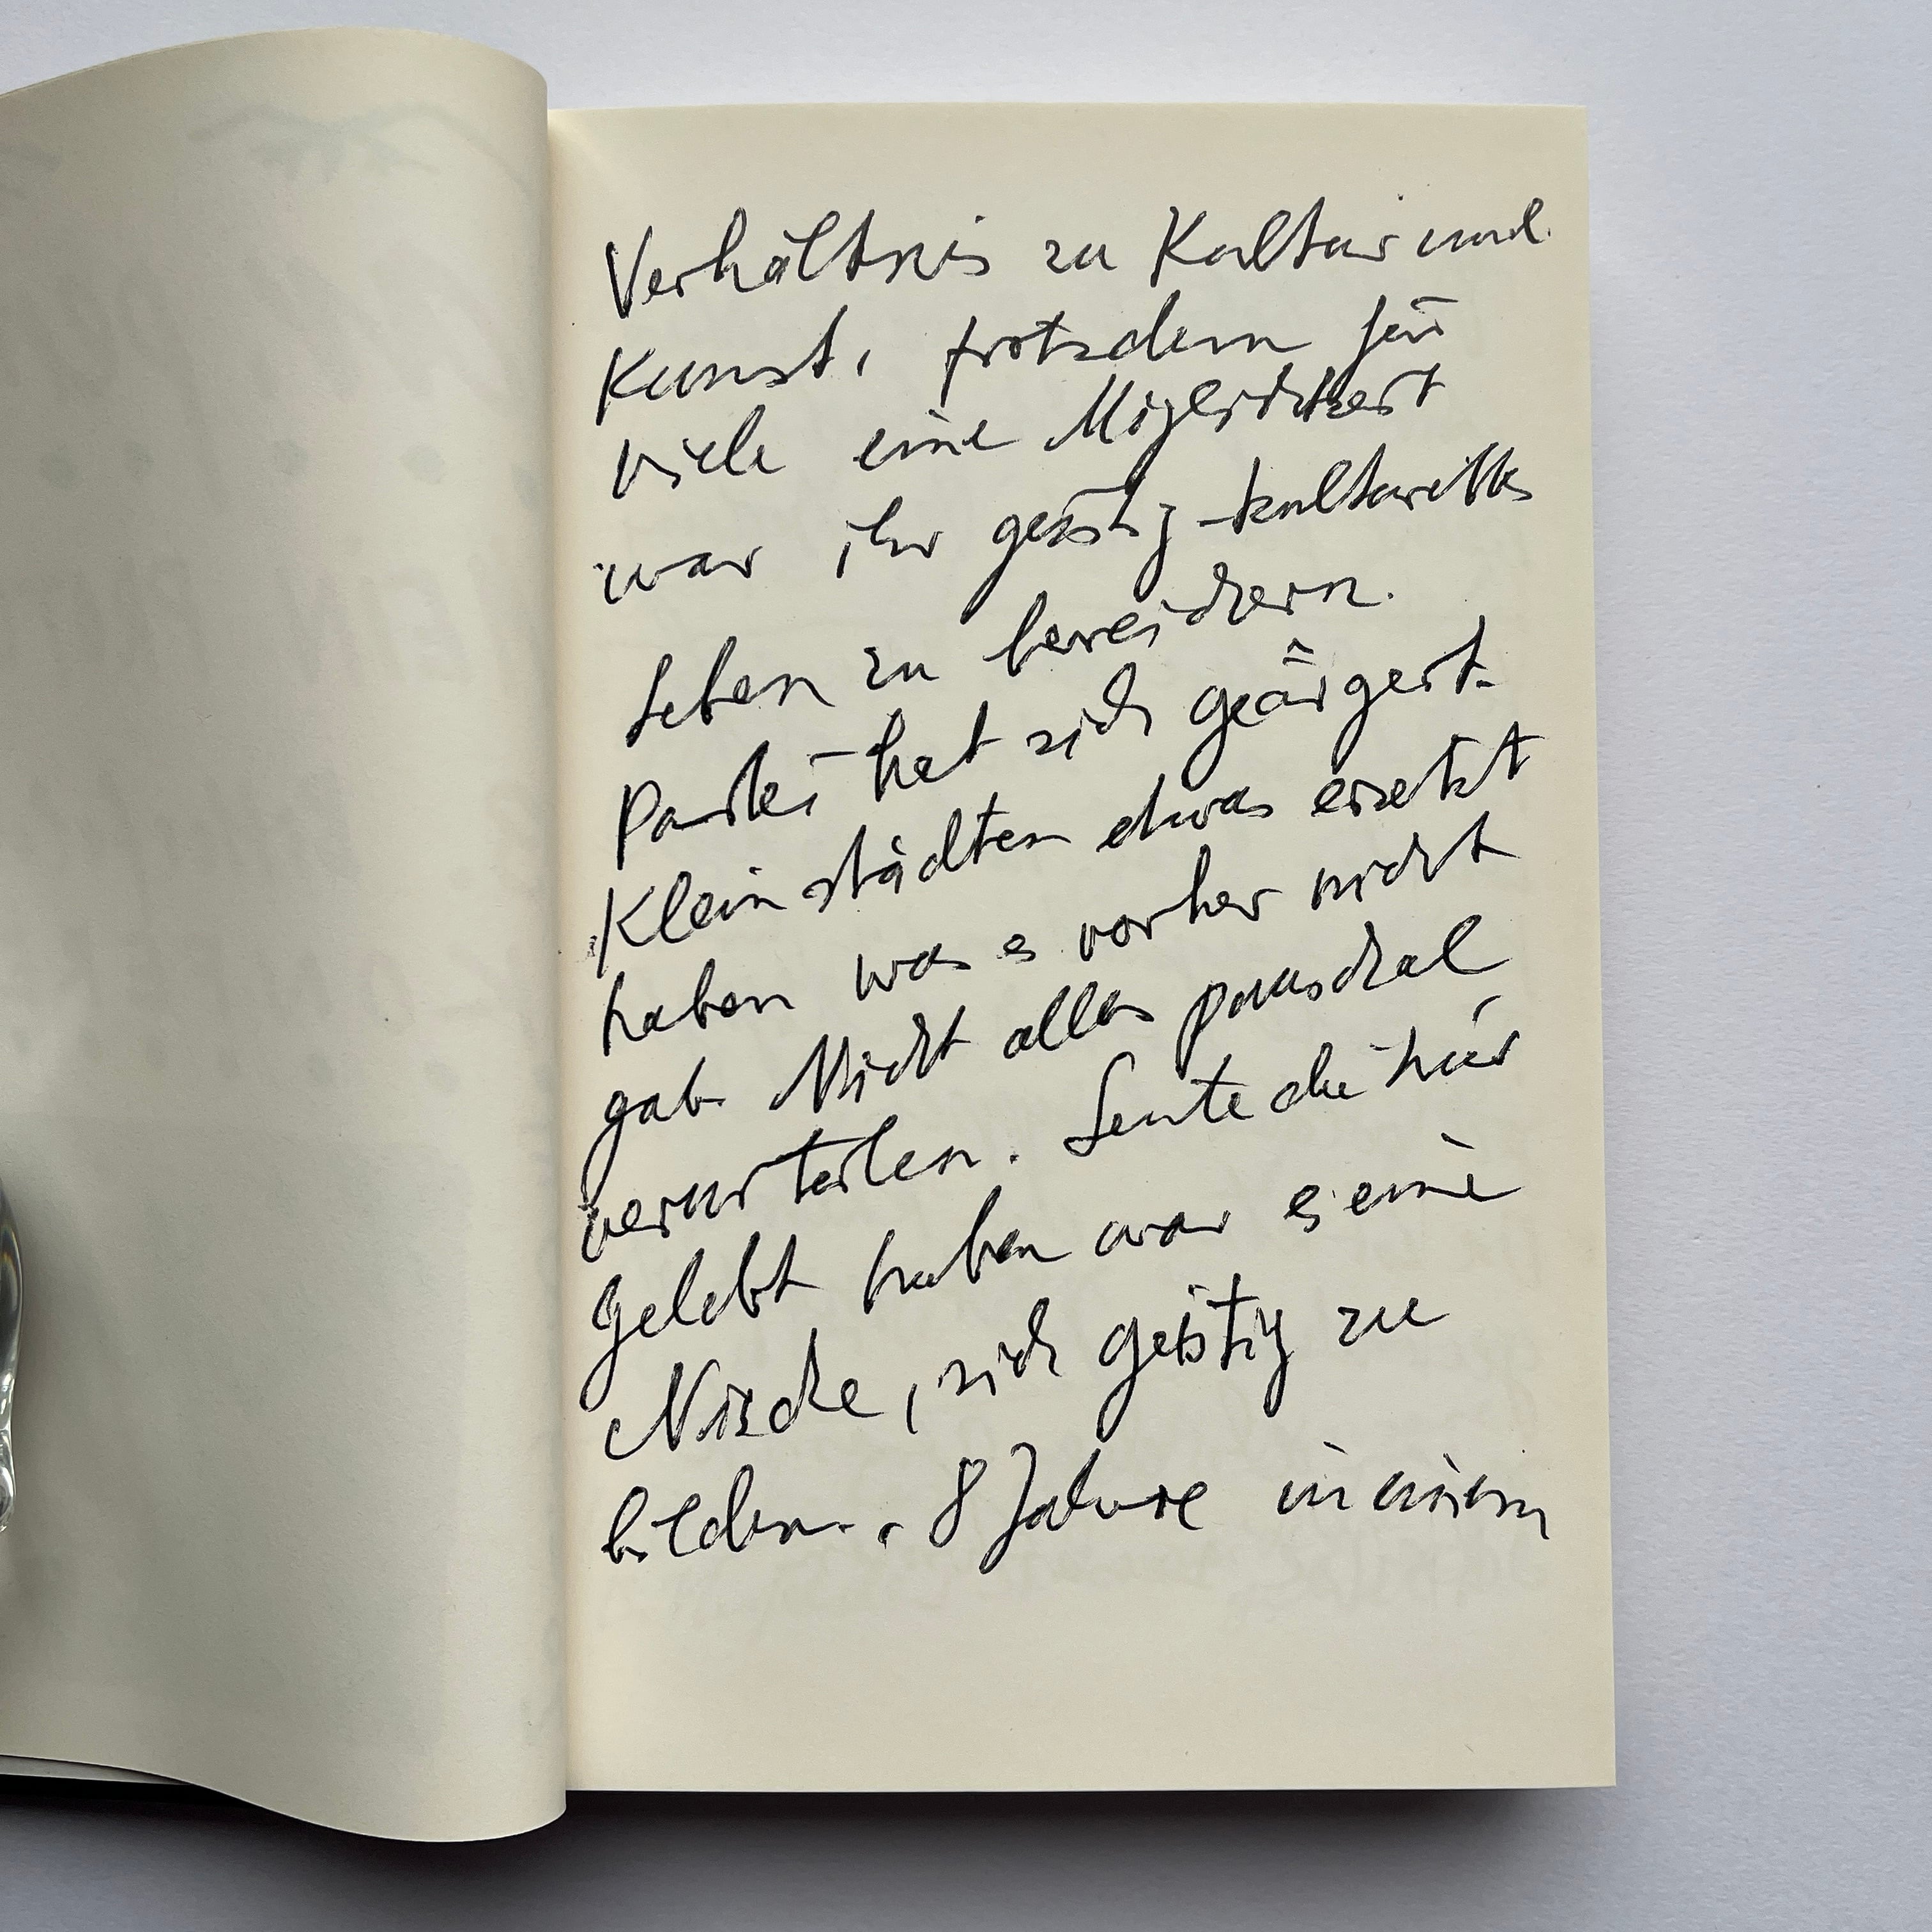 Verhältnis zu Kultur und
Kunst, trotzdem für
viele eine Möglichkeit
war ihr geistig-kulturelles
Leben zu bereichern.
Partei hat sich geärgert.
Kleinstädten etwas ersetzt
haben was es vorher nicht
gab. Nicht alles pauschal
verurteilen. Leute die hier
gelebt haben war es eine
Nische, sich geistig zu
bilden. 8 Jahre in einem